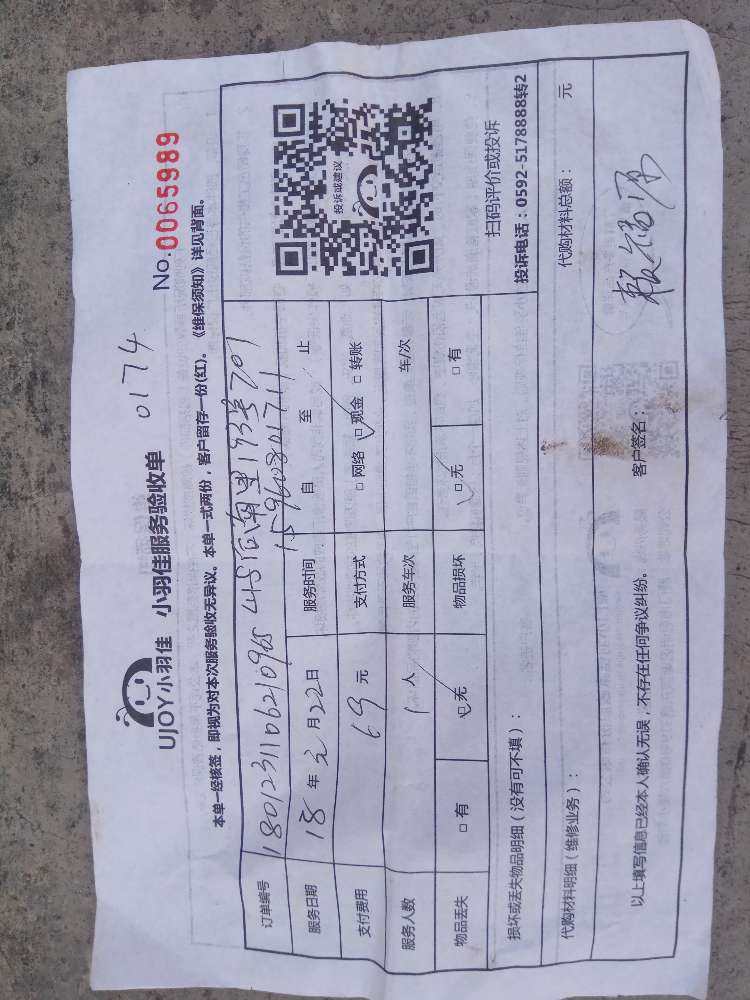 UJOY小羽佳 小羽佳服务验收单 0174 No.0065989
本单一经核签，即视为对本次服务验收无异议。本单一式两份，客户留存一份(红)。《维保须知》详见背面。
订单编号 1801231106210965 南里193号701
15960801711
服务日期 18年元月22日 服务时间 自 至 止
支付费用 69元 支付方式 □网络 ☑现金 □转账
服务人数 1人 服务车次 车/次
物品丢失 □有 ☑无 物品损坏 ☑无 □有
投诉或建议
扫码评价或投诉
投诉电话：0592-5178888转2
损坏或丢失物品明细（没有可不填）：
代购材料明细（维修业务）： 代购材料总额： 元
以上填写信息已经本人确认无误，不存在任何争议纠纷。 客户签名：赖福源